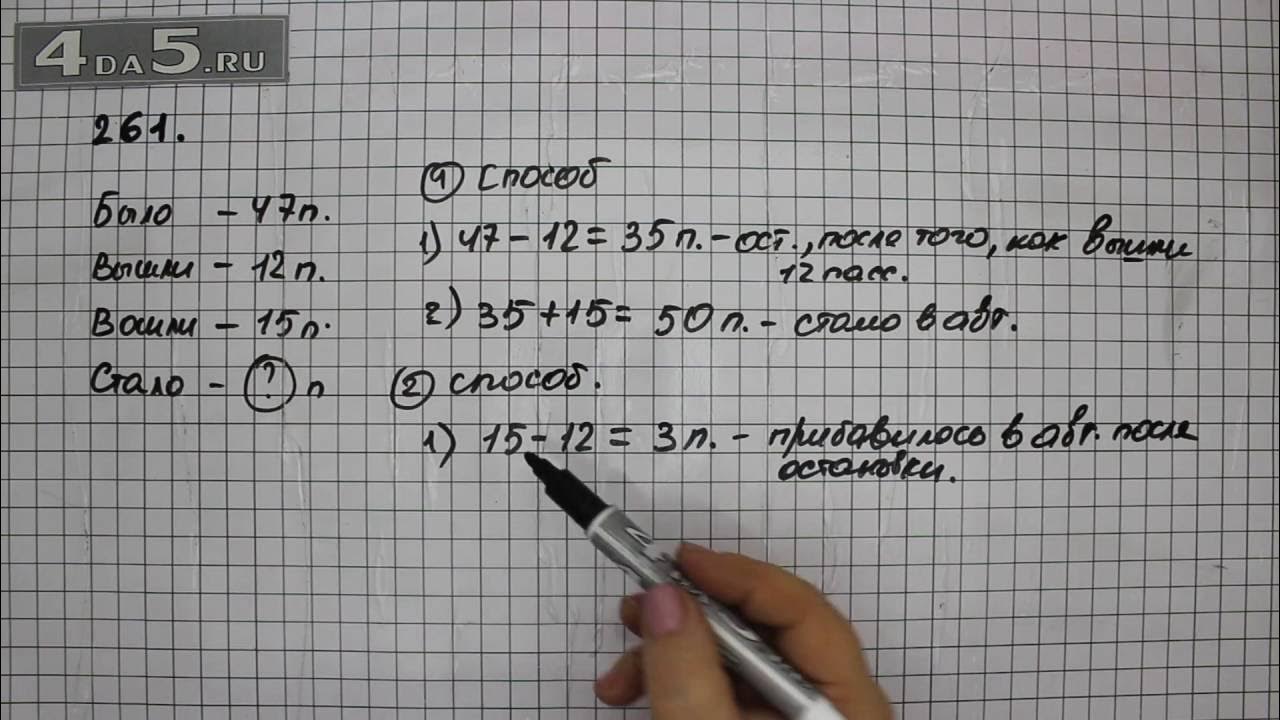 4DA5.RU
261.
Было - 47п.
Вышли - 12п.
Вошли - 15п.
Стало - ? п
1 Способ
1) 47 - 12 = 35п. - ост., после того, как вышли
12 пасс.
2) 35 + 15 = 50п. - стало в авт.
2 способ.
1) 15 - 12 = 3п. - прибавилось в авт. после
остановки.